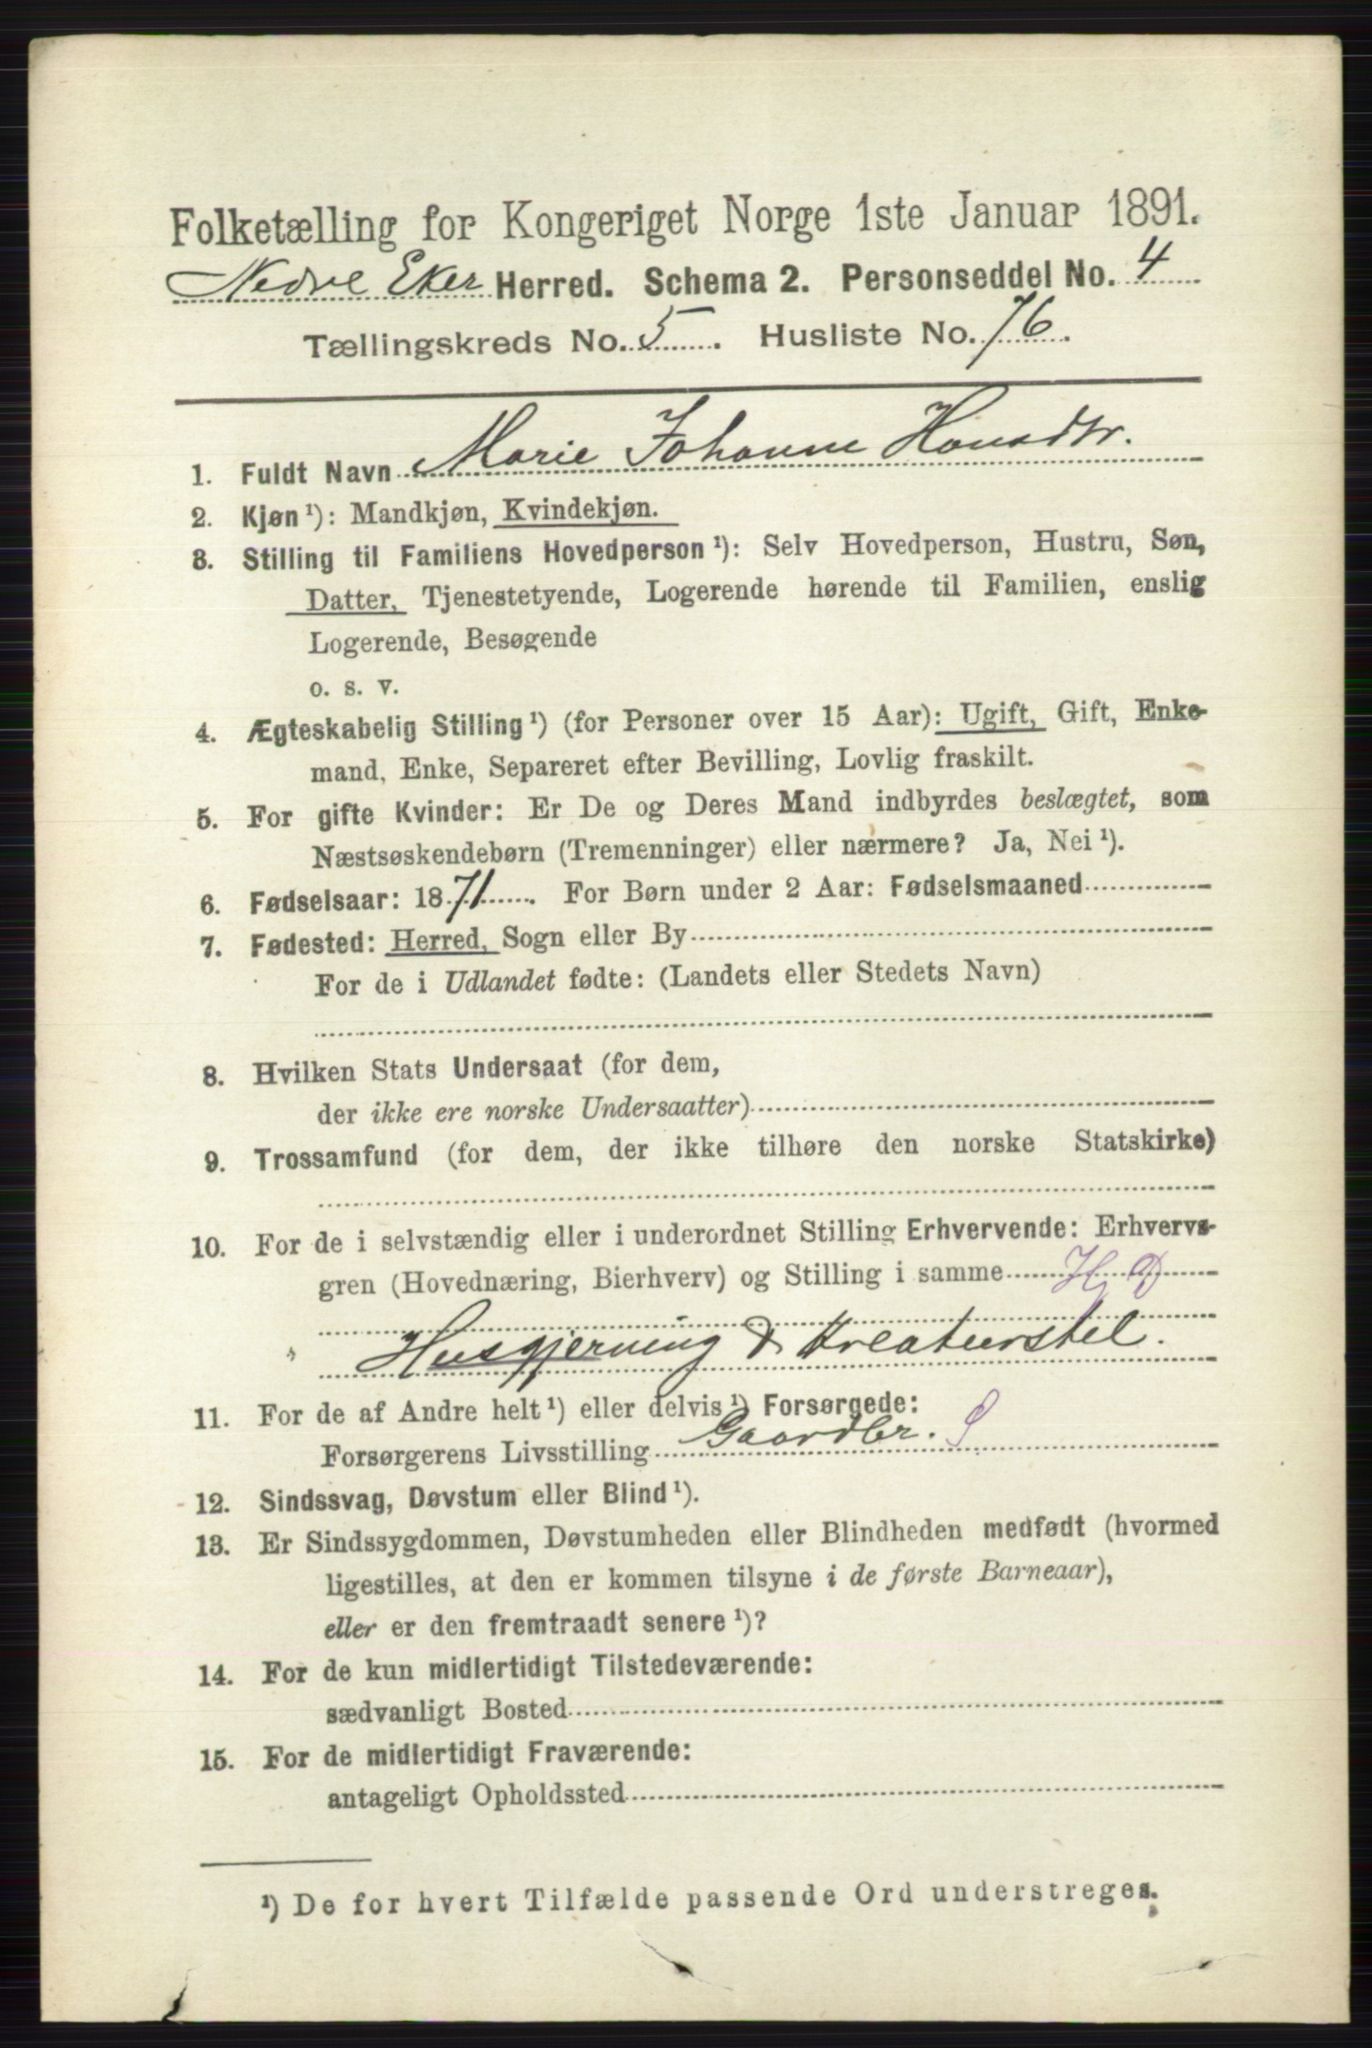 Folketælling for Kongeriget Norge 1ste Januar 1891.
Nedre Eker Herred. Schema 2. Personseddel No. 4
Tællingskreds No. 5. Husliste No. 76.
1. Fuldt Navn Marie Johanne Hansdtr.
2. Kjøn¹): Mandkjøn, Kvindekjøn.
3. Stilling til Familiens Hovedperson¹): Selv Hovedperson, Hustru, Søn,
Datter, Tjenestetyende, Logerende hørende til Familien, enslig
Logerende, Besøgende
o. s. v.
4. Ægteskabelig Stilling¹) (for Personer over 15 Aar): Ugift, Gift, Enke-
mand, Enke, Separeret efter Bevilling, Lovlig fraskilt.
5. For gifte Kvinder: Er De og Deres Mand indbyrdes beslægtet, som
Næstsøskendebørn (Tremenninger) eller nærmere? Ja, Nei¹).
6. Fødselsaar: 1871. For Børn under 2 Aar: Fødselsmaaned
7. Fødested: Herred, Sogn eller By
For de i Udlandet fødte: (Landets eller Stedets Navn)
8. Hvilken Stats Undersaat (for dem,
der ikke ere norske Undersaatter)
9. Trossamfund (for dem, der ikke tilhøre den norske Statskirke)
10. For de i selvstændig eller i underordnet Stilling Erhvervende: Erhvervs-
gren (Hovednæring, Bierhverv) og Stilling i samme H, D
Husgjerning & Kreaturstel.
11. For de af Andre helt¹) eller delvis¹) Forsørgede:
Forsørgerens Livsstilling Gaardbr. S
12. Sindssvag, Døvstum eller Blind¹).
13. Er Sindssygdommen, Døvstumheden eller Blindheden medfødt (hvormed
ligestilles, at den er kommen tilsyne i de første Barneaar),
eller er den fremtraadt senere¹)?
14. For de kun midlertidigt Tilstedeværende:
sædvanligt Bosted
15. For de midlertidigt Fraværende:
antageligt Opholdssted
¹) De for hvert Tilfælde passende Ord understreges.